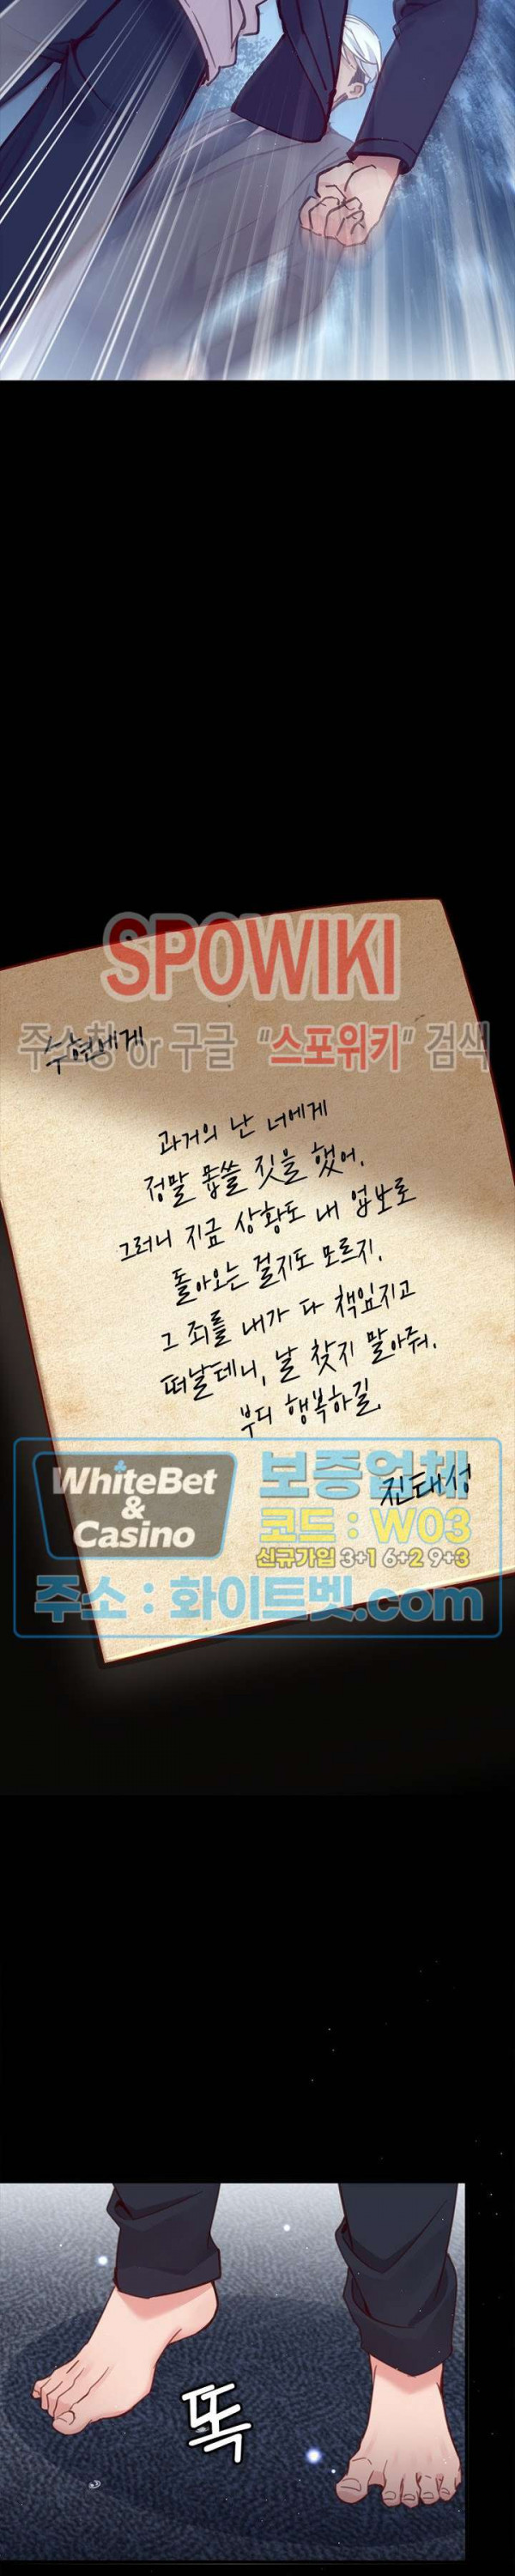 SPOWIKI
주소창 or 구글 "스포위키" 검색
수현에게
과거의 난 너에게
정말 몹쓸 짓을 했어.
그러니 지금 상황도 내 업보로
돌아오는 걸지도 모르지.
그 죄를 내가 다 책임지고
떠날테니, 날 찾지 말아줘.
부디 행복하길.
진태성
WhiteBet
&
Casino
보증업체
코드 : W03
신규가입 3+1 6+2 9+3
주소 : 화이트벳.com
똑